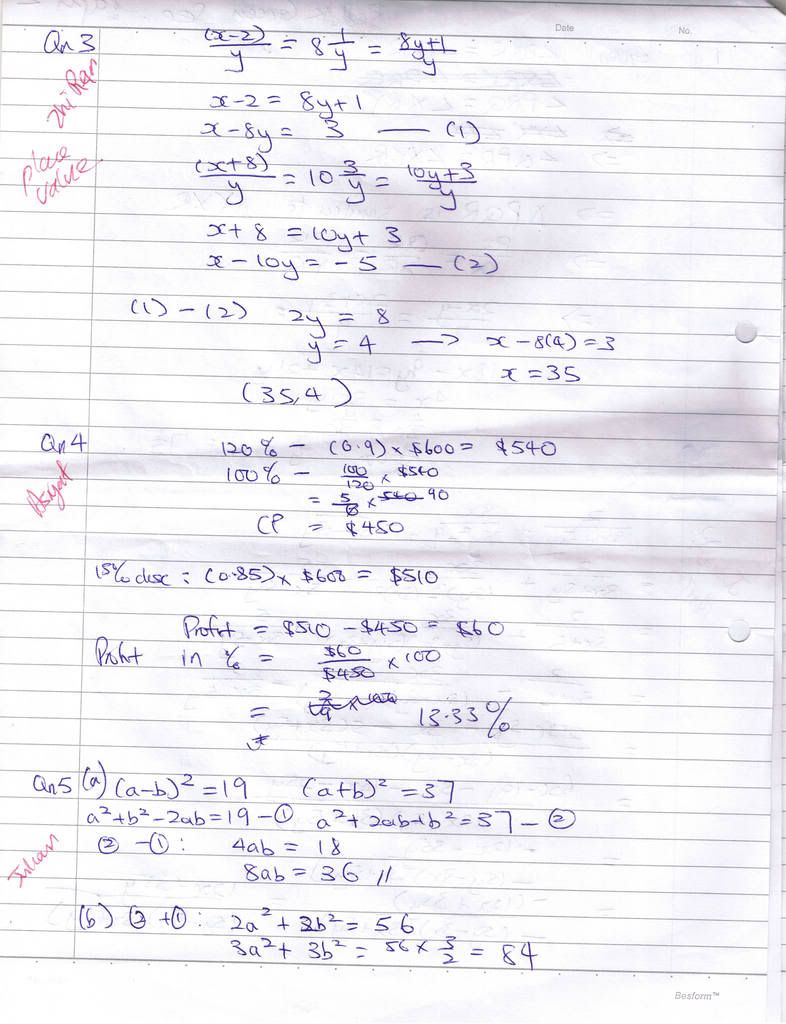 Date
No.
Qn 3
(x-2)/y = 8 1/y = (8y+1)/y
Zhi Ran
x-2 = 8y+1
x-8y = 3 — (1)
place value
(x+8)/y = 10 3/y = (10y+3)/y
x+8 = 10y+3
x-10y = -5 — (2)
(1) - (2) 2y = 8
y = 4 → x-8(4) = 3
x = 35
(35,4)
Qn 4
120% - (0.9) × $600 = $540
100% - 100/120 × $540
= 5/6 × 540 90
CP = $450
15% disc : (0.85) × $600 = $510
Profit = $510 - $450 = $60
Profit in % = $60/$450 × 100
= 13.33%
Qn5 (a) (a-b)² = 19 (a+b)² = 37
a²+b²-2ab = 19 - ① a²+2ab+b² = 37 - ②
② - ① : 4ab = 18
Julian
8ab = 36 //
(b) ② + ① : 2a² + 2b² = 56
3a² + 3b² = 56 × 3/2 = 84
Besform™